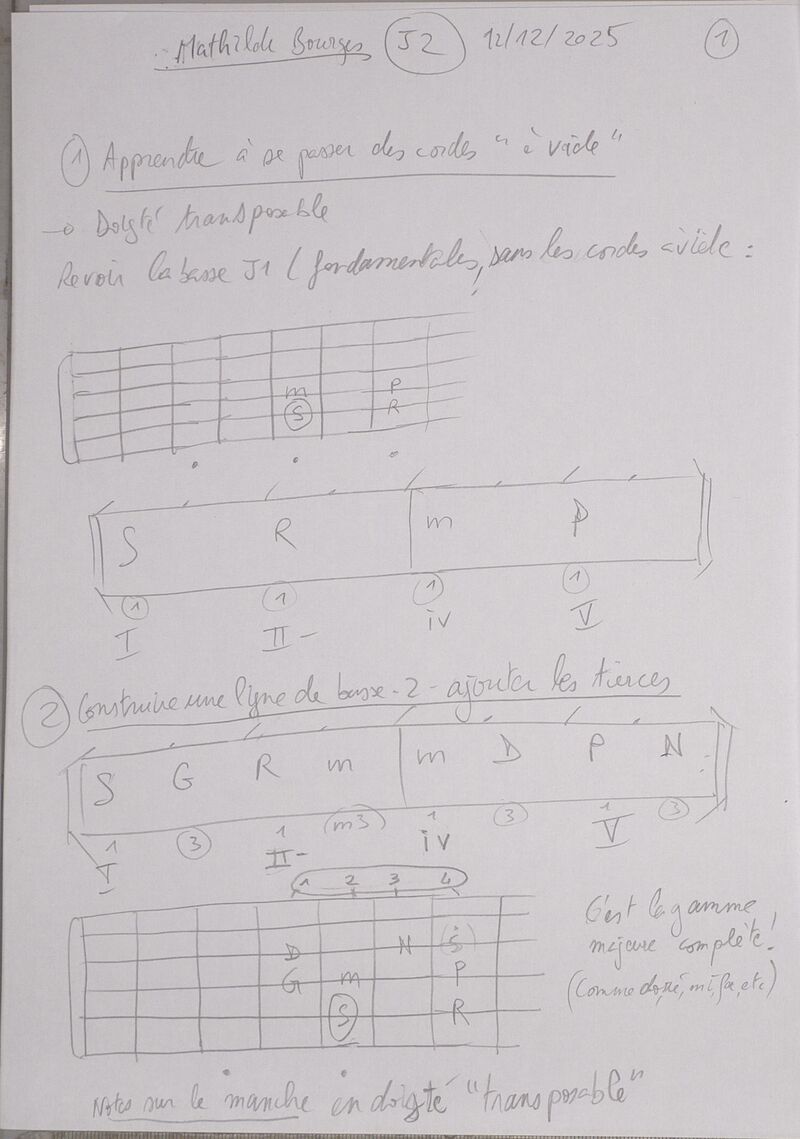 Mathilde Bourges J2 12/12/2025 1
1 Apprendre à se passer des cordes "à vide"
→ Doigté transposable
Revoir la basse J1 (fondamentales, sans les cordes à vide :
m P
S R
S R m P
1 1 1 1
I II- iv V
2 Construire une ligne de basse - 2 - ajouter les tierces
S G R m m D P N
1 3 1 (m3) 1 3 1 3
I II- iv V
1 2 3 4
D N Ṡ
G m P
S R
C'est la gamme
majeure complète !
(Comme do, ré, mi, fa, etc)
Notes sur le manche en doigté "transposable"